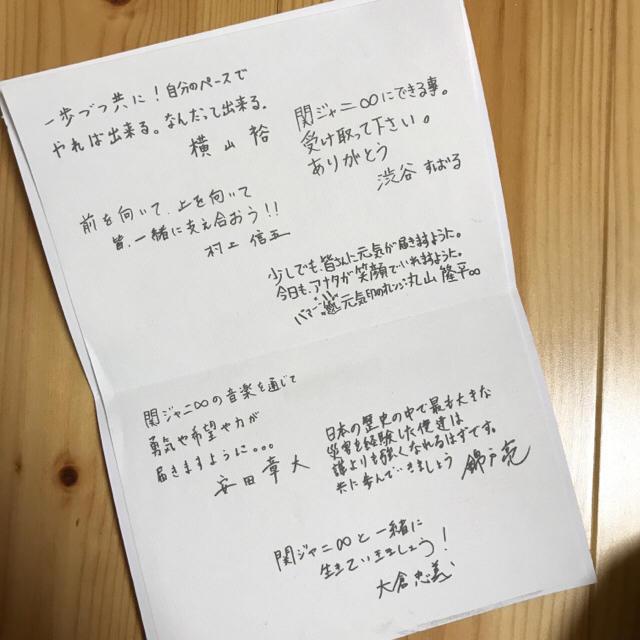 一歩づつ共に！自分のペースで
やれば出来る。なんだって出来る。
横山裕
関ジャニ∞にできる事。
受け取って下さい。
ありがとう
渋谷すばる
前を向いて、上を向いて
皆、一緒に支え合おう！！
村上信五
少しでも、皆さんに元気が届きますように。
今日も、アナタが笑顔でいれますように。
パァーン 元気印のオレンジ:丸山隆平∞
関ジャニ∞の音楽を通じて
勇気や希望や力が
届きますように。。。
安田章大
日本の歴史の中で最も大きな
災害を経験した俺達は
誰よりも強くなれるはずです。
共に歩んでいきましょう
錦戸亮
関ジャニ∞と一緒に
生きていきましょう！
大倉忠義